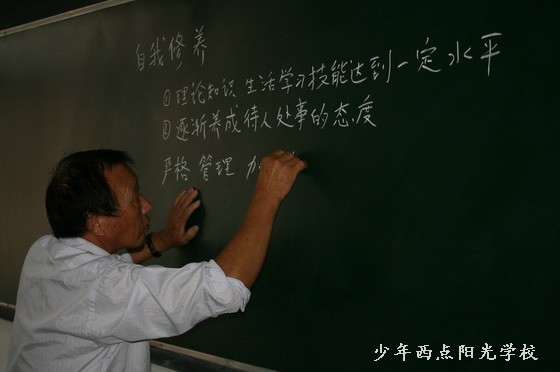 自我修养
①理论知识 生活学习技能达到一定水平
②逐渐养成待人处事的态度
严格管理
少年西点阳光学校